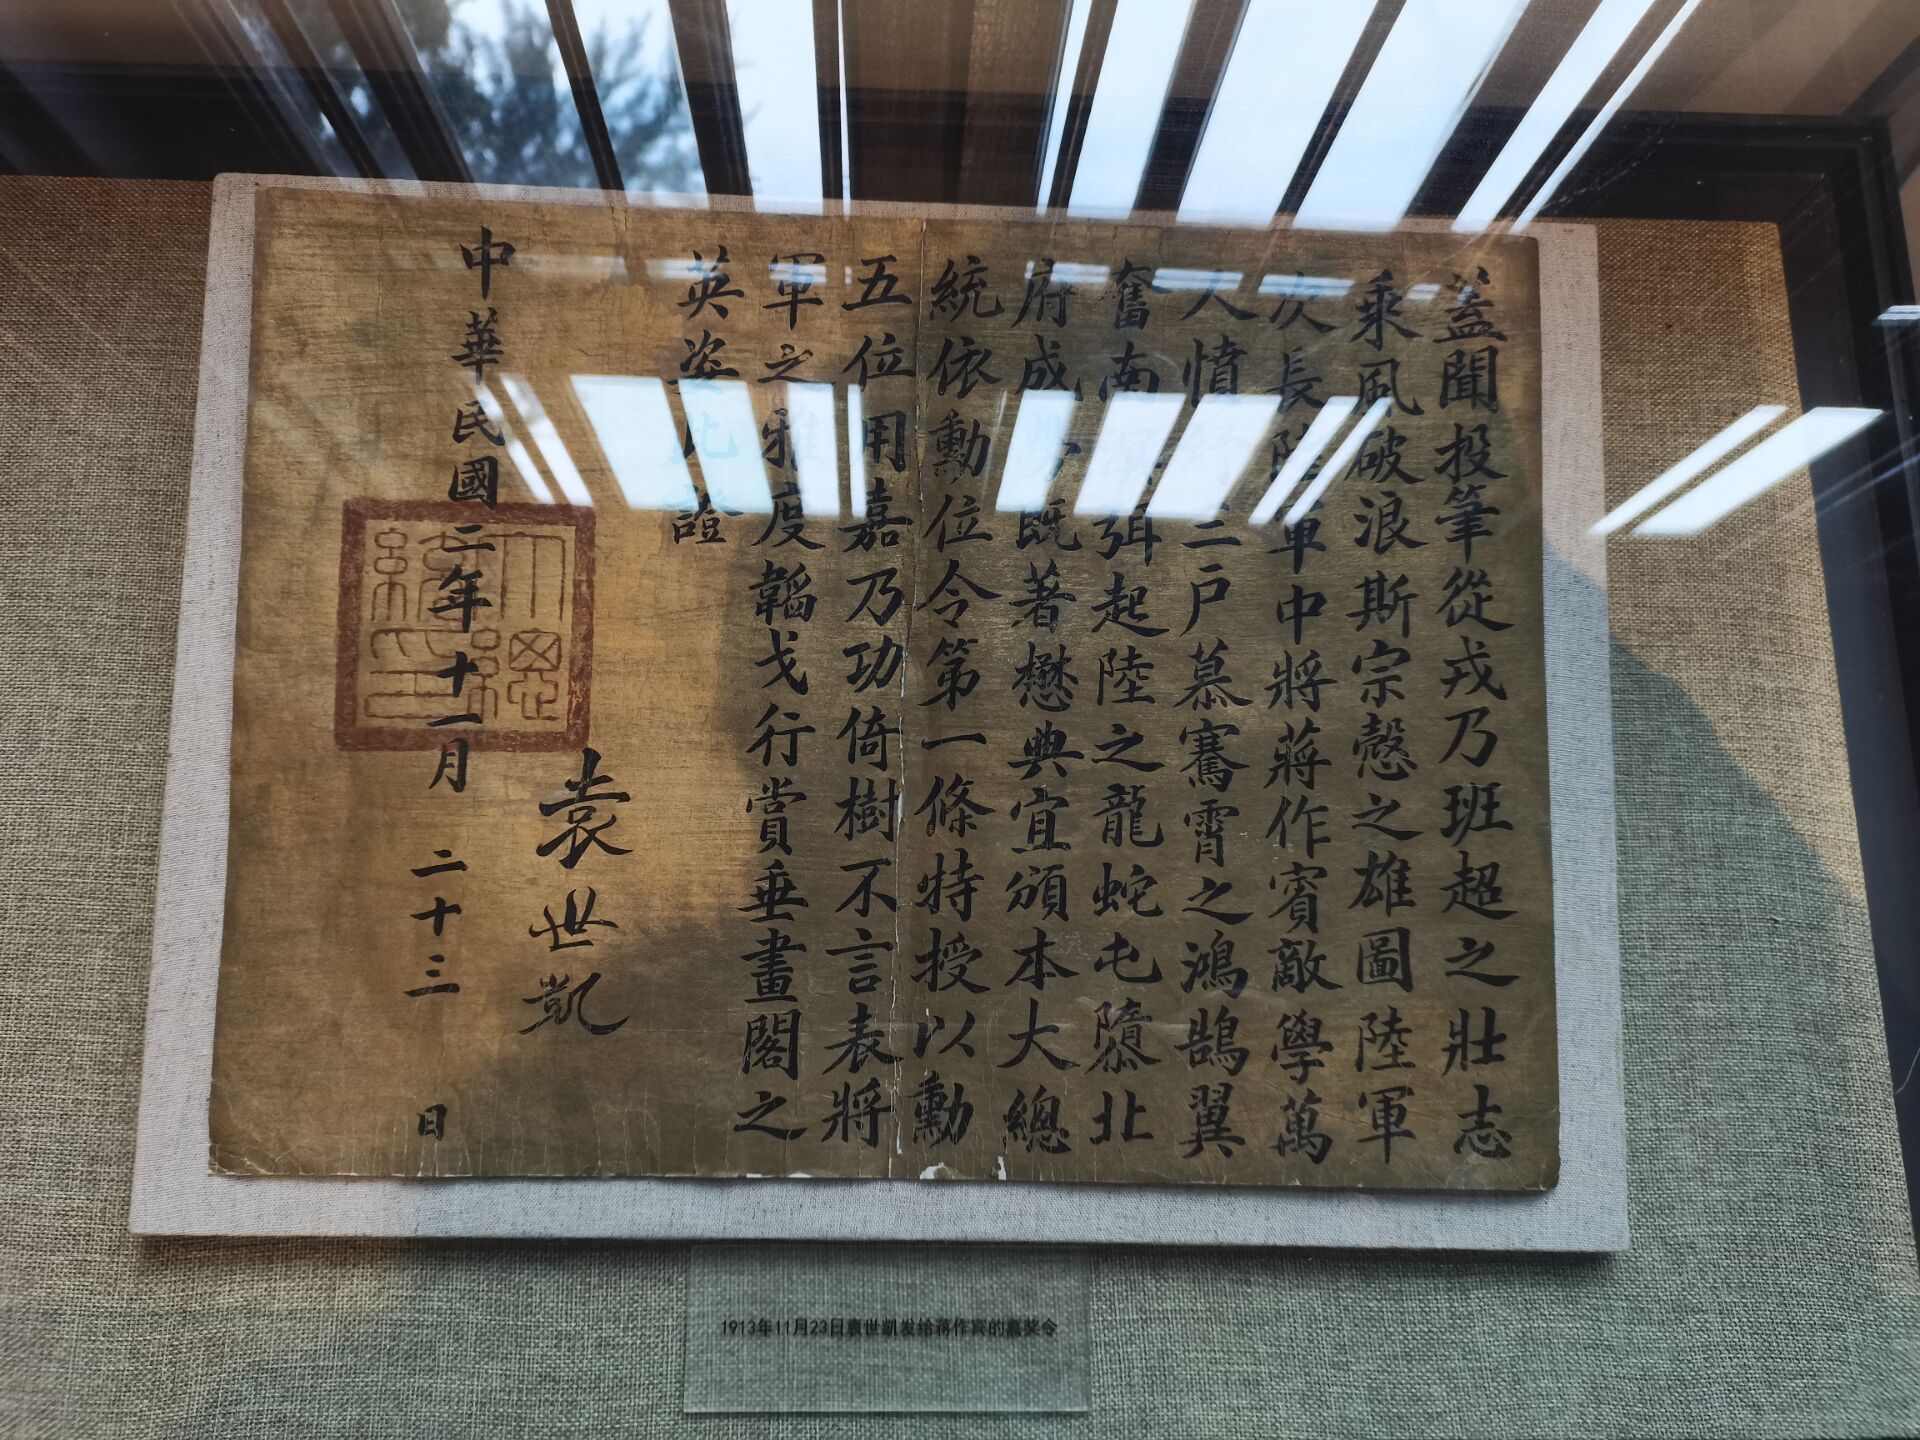 蓋聞投筆從戎乃班超之壯志
乘風破浪斯宗愨之雄圖陸軍
次長陸軍中將蔣作賓敵學萬
人憤三戶慕騫霄之鴻鵠翼
奮南溟弭起陸之龍蛇屯隳北
府成勞既著懋典宜頒本大總
統依勳位令第一條特授以勳
五位用嘉乃功倚樹不言表將
軍之雅度韜戈行賞垂畫閣之
英姿此證
袁世凱
中華民國二年十一月二十三日
大總統印
1913年11月23日袁世凯发给蒋作宾的嘉奖令